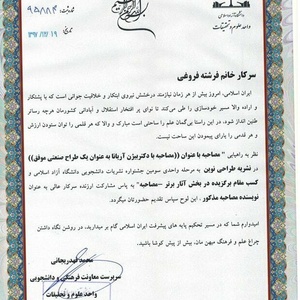 دانشگاه آزاد اسلامی
واحد علوم و تحقیقات
شماره ثبت: ۹۵/۸۸۴
تاریخ:
سرکار خانم فرشته فروغی
ایران اسلامی، امروز بیش از هر زمان نیازمند درخشش نیروی ابتکار و خلاقیت جوانی است که با پشتکار
و اراده والا مسیر خودسازی را طی می‌کند تا نوای پر افتخار استقلال و آبادانی کشورمان هرچه رساتر
طنین انداز شود. در این راستا بی‌گمان علم را ساحتی است مبارک و والا که هر قلمی را توان ستودن ارزش
و هر قدمی را یارای پیمودن این ساحت نیست.
نظر به راهیابی " مصاحبه با عنوان ((مصاحبه با دکتربیژن آریانا به عنوان یک طراح صنعتی موفق))
در نشریه طراحی نوین به مرحله واحدی سومین جشنواره نشریات دانشجویی دانشگاه آزاد اسلامی و
کسب مقام برگزیده در بخش آثار برتر -مصاحبه" به پاس مشارکت ارزنده سرکار عالی به عنوان
نویسنده مصاحبه مذکور . این لوح سپاس تقدیم حضورتان میگردد.
امیدوارم شما که در مسیر تحکیم پایه های پیشرفت ایران اسلامی گام بر میدارید، در روشن نگاه داشتن
چراغ علم و فرهنگ میهن مان، بیش از پیش کوشا باشید.
محمد فهدریجانی
سرپرست معاونت فرهنگی و دانشجویی
واحد علوم و تحقیقات